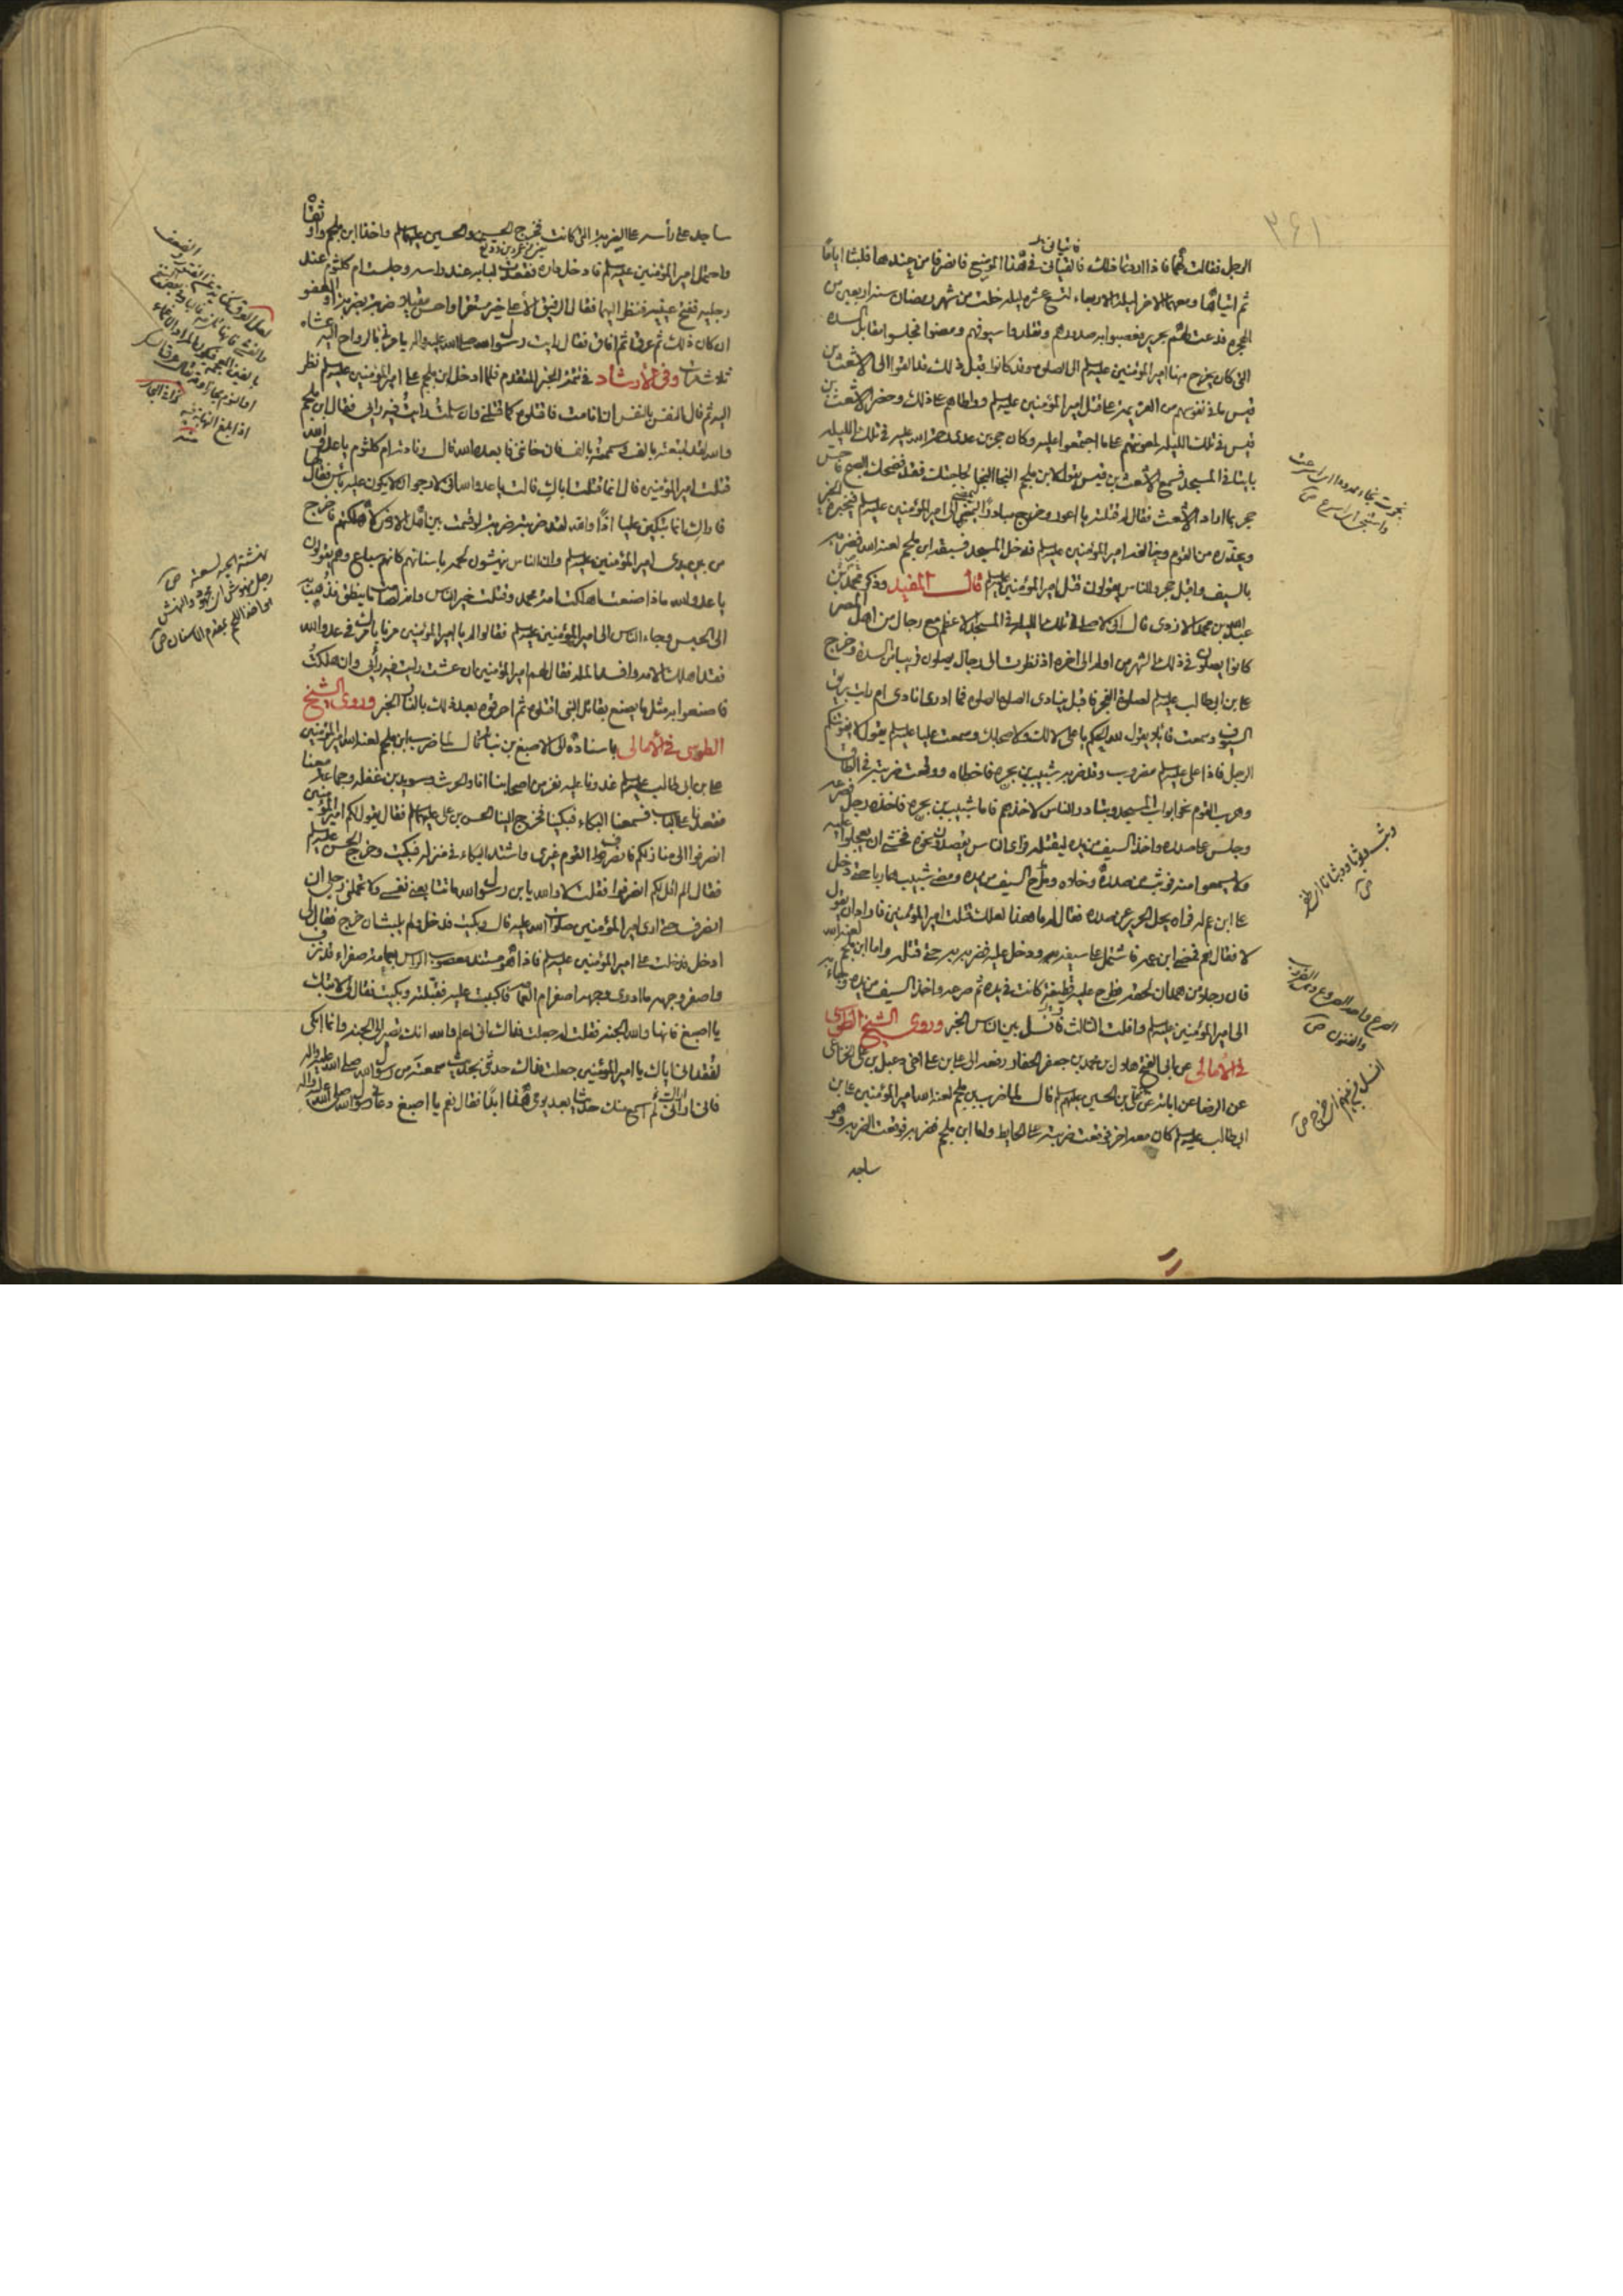 ٣٤١
الرجل فقالت لهما فاذا اردتما ذلك فالقياني في هذا الموضع فانصرفا من عندها فلبثا اياما
فاتياني
ثم اتياها ومعهما الاخر ليلة الاربعاء لتسع عشرة ليلة خلت من شهر رمضان سنة اربعين من
الهجرة فدعت لهم بحرير فعصبوا به صدورهم وتقلدوا سيوفهم ومضوا فجلسوا مقابل السدة
التي كان يخرج منها امير المؤمنين عليه السلم الى الصلوة وقد كانوا قبل ذلك قد القوا الى الاشعث بن
قيس ما في نفوسهم من العزيمة على قتل امير المؤمنين عليه السلم وواطاهم على ذلك وحضر الاشعث بن
قيس في تلك الليلة لمعونتهم على ما اجتمعوا عليه وكان حجر بن عدى رحمة الله عليه في تلك الليلة
بايتا في المسجد فسمع الاشعث بن قيس يقول لابن ملجم النجا النجا لحاجتك فقد فضحك الصبح فاحس
حجر بما اراد الاشعث فقال له قتلته يا اعور وخرج مبادرا ليمضي الى امير المؤمنين عليه السلم فيخبره الخبر
ويحذره من القوم وخالفه امير المؤمنين عليه السلم فدخل المسجد فسبقه ابن ملجم لعنه الله فضربه
بالسيف واقبل حجر والناس يقولون قتل امير المؤمنين عليه السلم قال المفيد وذكر محمد بن
عبد الله بن محمد الازدى قال انى لاصلي في تلك الليلة في المسجد الاعظم مع رجال من اهل المصر
كانوا يصلون في ذلك الشهر من اوله الى اخره اذ نظرت الى رجال يصلون قريبا من السدة وخرج
على بن ابى طالب عليه السلم لصلوة الفجر فاقبل ينادى الصلوة الصلوة فما ادرى انادى ام رايت بريق
السيوف وسمعت قائلا يقول لله الحكم يا على لا لك ولا لاصحابك وسمعت عليا عليه السلم يقول لا يفوتنكم
الرجل فاذا على عليه السلم مضروب وقد ضربه شبيب بن بجرة فاخطاه ووقعت ضربته في الطاق
وهرب القوم نحو ابواب المسجد وتبادر الناس لاخذهم فاما شبيب بن بجرة فاخذه رجل فصرعه
وجلس على صدره واخذ السيف من يده ليقتله فراى الناس يقصدون نحوه فخشى ان يعجلوا عليه
ولا يسمعوا منه فوثب عن صدره وخلاه وطرح السيف من يده ومضى شبيب هاربا حتى دخل
على ابن عم له فراه يحل الحرير عن صدره فقال له ما هذا لعلك قتلت امير المؤمنين فاراد ان يقول
لا فقال نعم فمضى ابن عمه فاشتمل على سيفه ثم دخل عليه فضربه به حتى قتله واما ابن ملجم لعنه الله
فان رجلا من همدان لحقه فطرح عليه قطيفة كانت في يده ثم صرعه واخذ السيف من يده وجاء به
الى امير المؤمنين عليه السلم وافلت الثالث فانسل بين الناس الخبر وروى الشيخ الطوسى
في الامالى عن ابى الفتح هلال بن محمد بن جعفر الحفار رفعه الى على بن على اخى دعبل بن على الخزاعى
عن الرضا عن ابائه عن على بن الحسين عليهم السلم قال لما ضرب ابن ملجم لعنه الله امير المؤمنين على بن
ابى طالب عليه السلم كان معه اخر فوقعت ضربته على الحايط واما ابن ملجم فضربه فوقعت الضربة وهو
ساجد
ساجد على رأسه على الضربة التي كانت فخرج الحسن والحسين عليهما السلم واخذا ابن ملجم واوثقاه
من عمرو بن عبد ود
واحتمل امير المؤمنين عليه السلم فادخل داره فقعدت لبابة عند راسه وجلست ام كلثوم عند
رجليه ففتح عينيه فنظر اليهما فقال الرفيق الاعلى خير مستقرا واحسن مقيلا ضربة بضربة او العفو
ان كان ذلك ثم عرق ثم افاق فقال رايت رسول الله صلى الله عليه واله يامرنى بالرواح اليه عشاء
ثلاث مرات وفى الارشاد في تتمة الخبر المتقدم فلما ادخل ابن ملجم على امير المؤمنين عليه السلم نظر
اليه ثم قال النفس بالنفس ان انا مت فاقتلوه كما قتلنى وان سلمت رايت فيه رايى فقال ابن ملجم
والله لقد ابتعته بالف وسممته بالف فان خاننى فابعده الله قال ونادته ام كلثوم يا عدو الله
قتلت امير المؤمنين قال انما قتلت اباك قالت يا عدو الله انى لارجو ان لا يكون عليه باس فقال لها
فاراك انما تبكين عليا اذا والله لقد ضربته ضربة لو قسمت بين اهل الارض لاهلكتهم فاخرج
من بين يدى امير المؤمنين عليه السلم وان الناس ينهشون لحمه باسنانهم كانهم سباع وهم يقولون
يا عدو الله ماذا صنعت اهلكت امة محمد وقتلت خير الناس وانه لصامت لا ينطق فذهب به
الى الحبس وجاء الناس الى امير المؤمنين عليه السلم فقالوا له يا امير المؤمنين مرنا بامرك في عدو الله
فقد اهلك الامة وافسد الملة فقال لهم امير المؤمنين ان عشت رايت فيه رأيى وان هلكت
فاصنعوا به مثل ما يصنع بقاتل النبى اقتلوه ثم احرقوه بعد ذلك بالنار الخبر وروى الشيخ
الطوسى في الامالى باسناده الى الاصبغ بن نباتة قال لما ضرب ابن ملجم لعنه الله امير المؤمنين
على بن ابى طالب عليه السلم غدونا عليه نفر من اصحابنا انا والحرث وسويد بن غفلة وجماعة معنا
فقعدنا على الباب فسمعنا البكاء فبكينا فخرج الينا الحسن بن على عليهما السلم فقال يقول لكم امير المؤمنين
انصرفوا الى منازلكم فانصرف القوم غيرى واشتد البكاء في منزله فبكيت وخرج الحسن عليه السلم
فقال الم اقل لكم انصرفوا فقلت لا والله يا بن رسول الله ما تتابعنى نفسى ولا تحملنى رجلى ان
انصرف حتى ارى امير المؤمنين صلوات الله عليه قال وبكيت فدخل ولم يلبث ان خرج فقال لى
ادخل فدخلت على امير المؤمنين عليه السلم فاذا هو مستند معصوب الراس بعمامة صفراء قد نزف
واصفر وجهه ما ادرى وجهه اصفر ام العمامة فاكببت عليه فقبلته وبكيت فقال لى لا تبك
يا اصبغ فانها والله الجنة فقلت له جعلت فداك انى اعلم والله انك تصير الى الجنة وانما ابكى
لفقدانى اياك يا امير المؤمنين جعلت فداك حدثنى بحديث سمعته من رسول الله صلى الله عليه واله
فانى اراك لم اسمع منك حديثا بعد يومى هذا ابدا فقال نعم يا اصبغ دعانى رسول الله صلى الله عليه واله
نهشته الحية لسعته